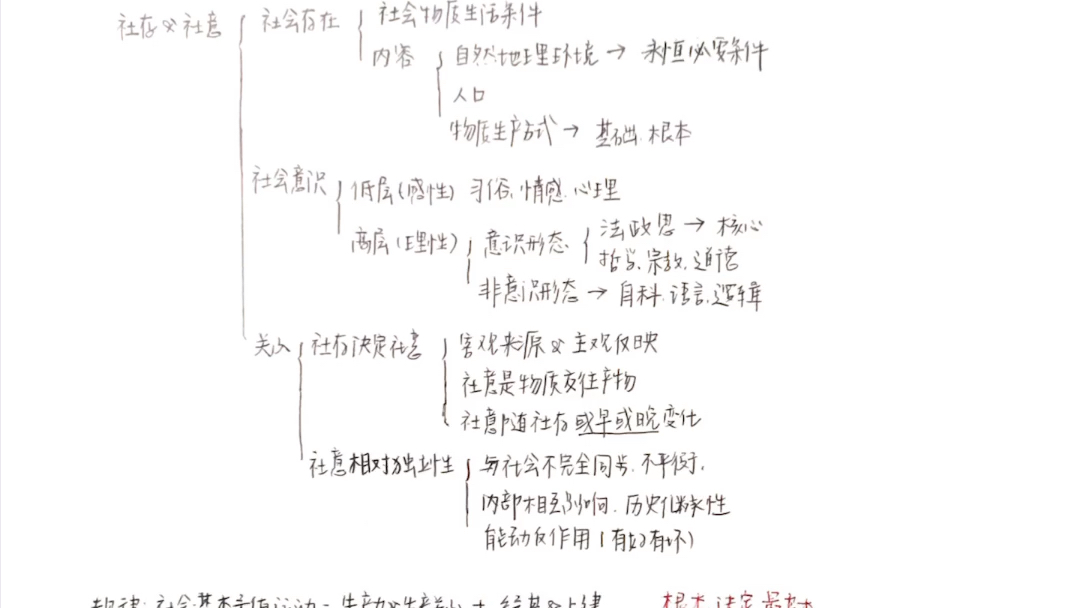 社存&社意 社会存在 社会物质生活条件
内容 自然地理环境 → 永恒必要条件
人口
物质生产方式 → 基础.根本
社会意识 低层(感性) 习俗.情感.心理
高层(理性) 意识形态 法政思 → 核心
哲学.宗教.道德
非意识形态 → 自科.语言.逻辑
关系 社存决定社意 客观来源&主观反映
社意是物质交往产物
社意随社存或早或晚变化
社意相对独立性 与社会不完全同步.不平衡.
内部相互影响.历史继承性
能动反作用(有好有坏)